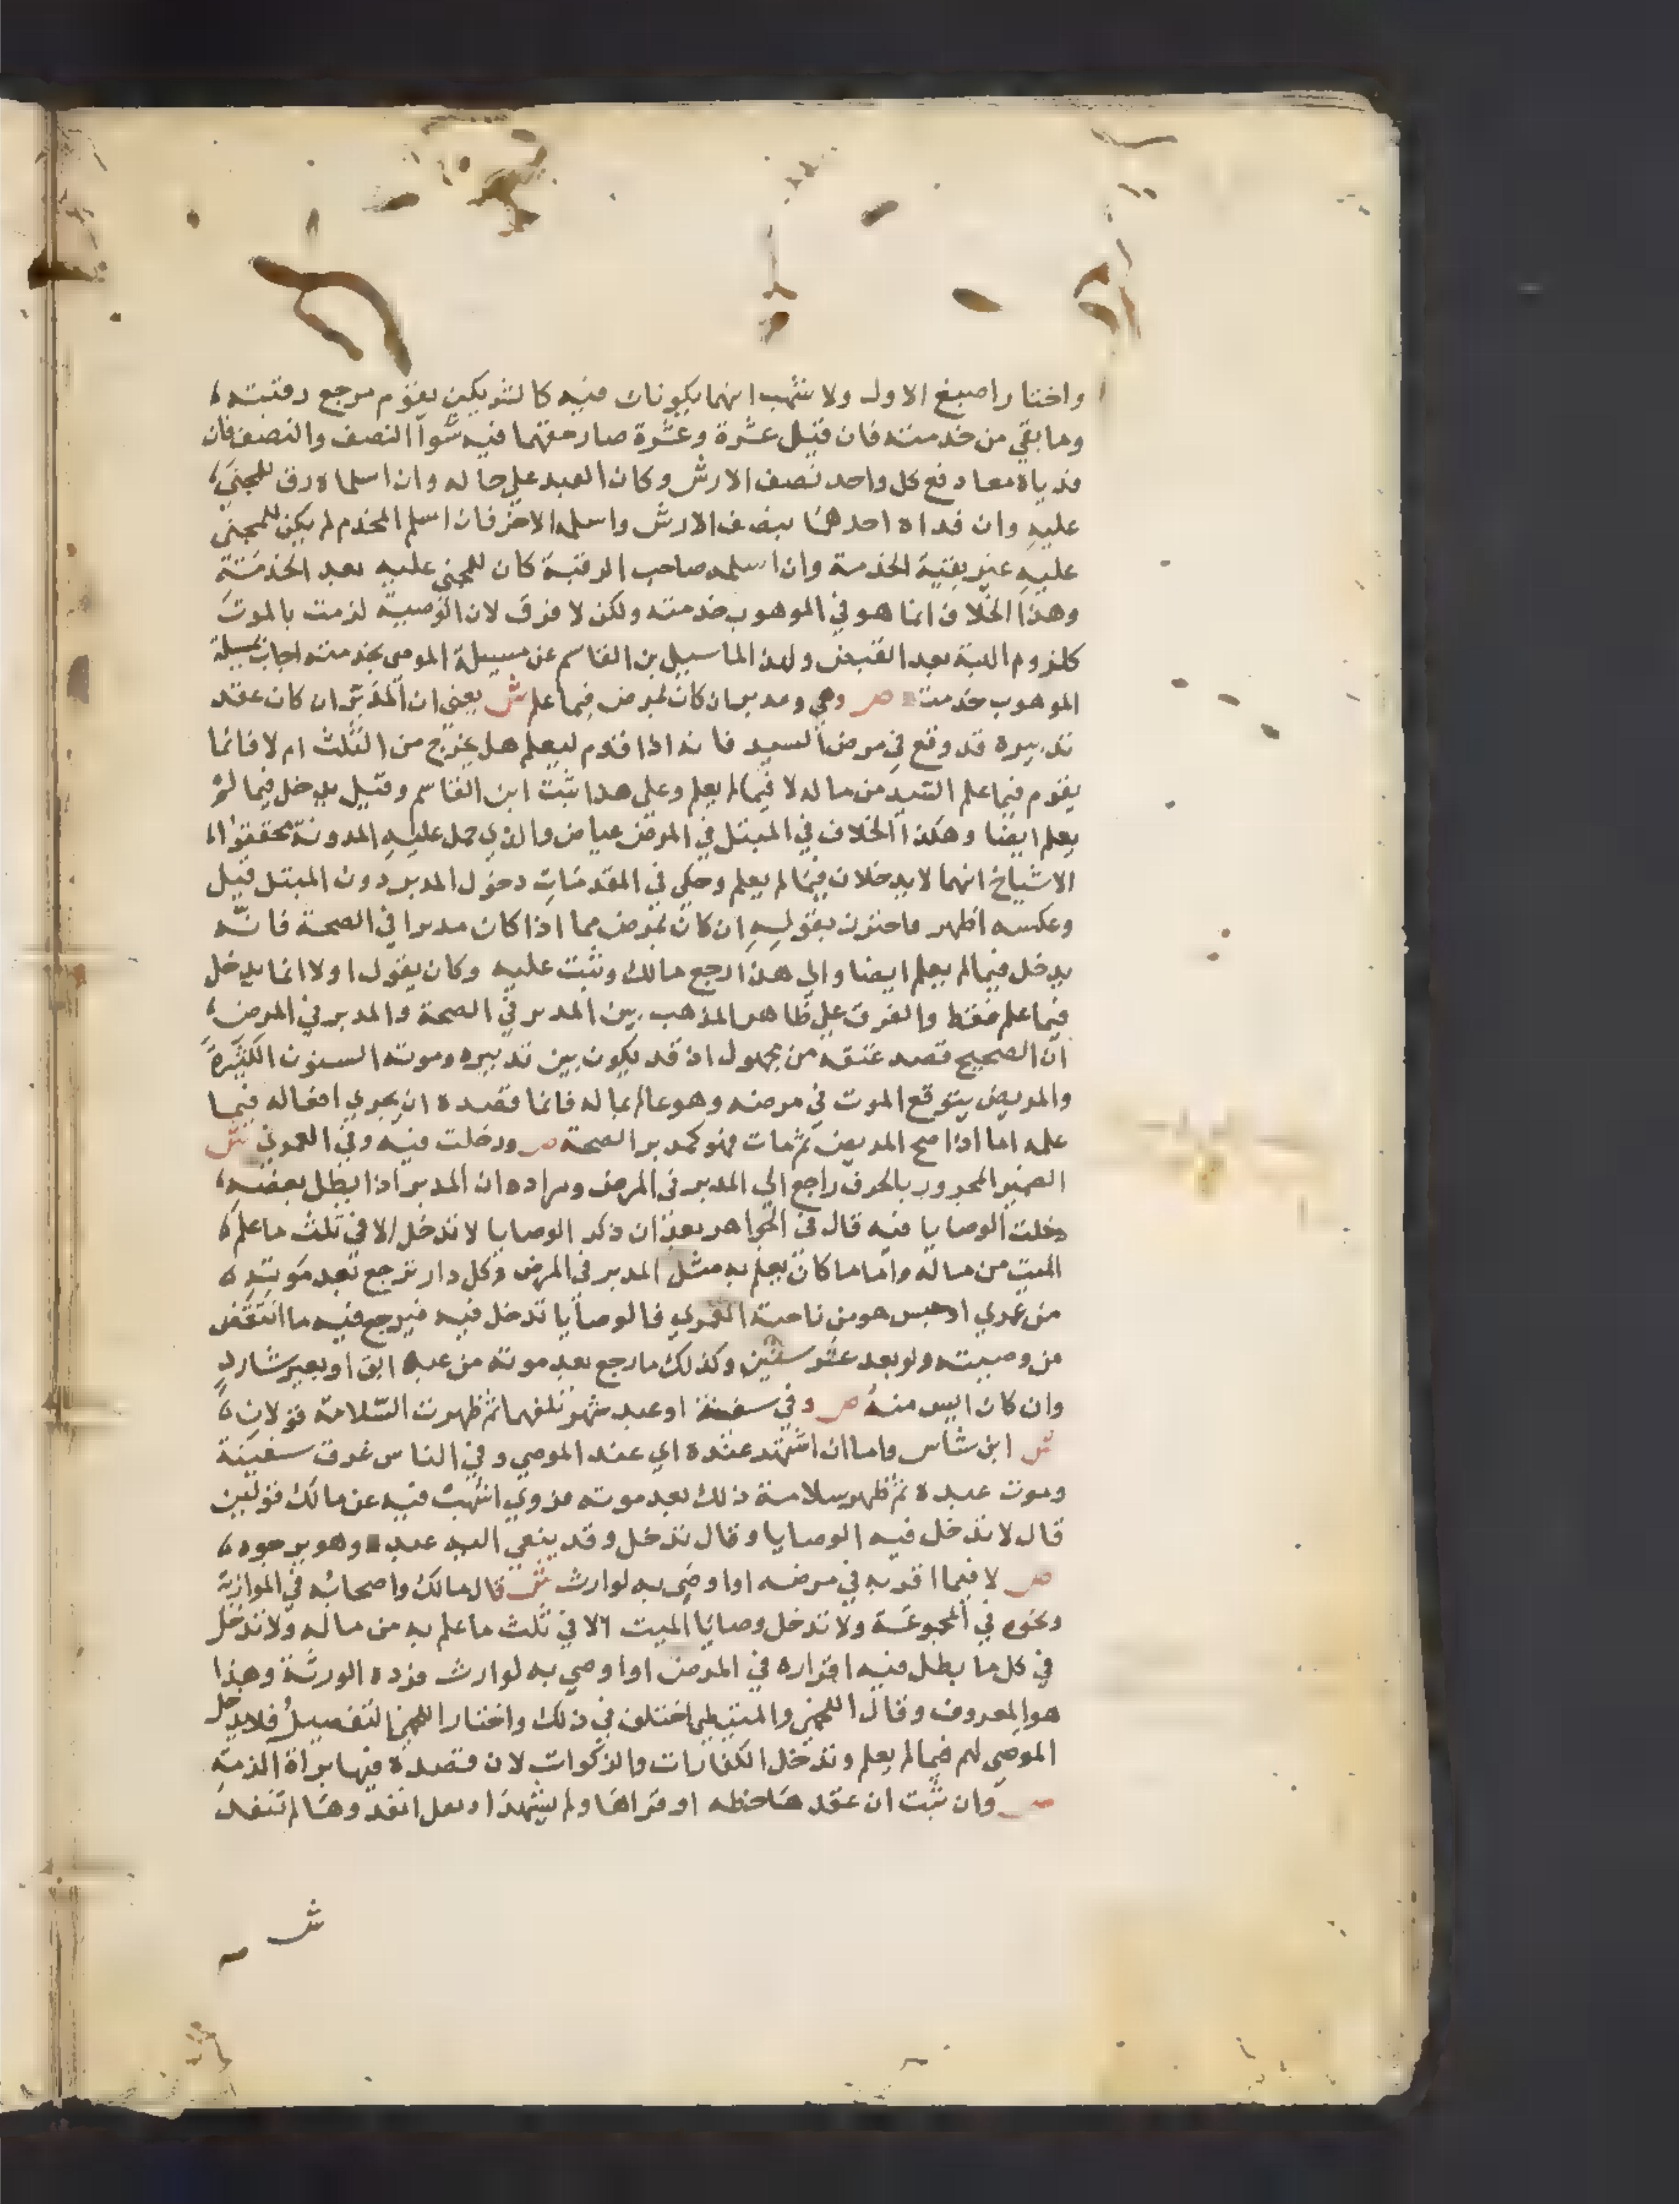 واختار اصبغ الاول ولا شهب انهما يكونان فيه كالشريكين يقوم مرجع رقبته
وما بقي من خدمته فان قيل عشرة وعشرة صار حقهما فيه سوآ النصف والنصف فان
فدياه معا دفع كل واحد نصف الارش وكان العبد علي حاله وان اسلماه رق للمجني
عليه وان فداه احدهما بنصف الارش واسلمه الاخر فان اسلم المخدم لم يكن للمجني
عليه غير بقية الخدمة وان اسلمه صاحب الرقبة كان للمجني عليه بعد الخدمة
وهذا الخلاف انما هو في الموهوب خدمته ولكن لا فرق لان الوصية لزمت بالموت
كلزوم الهبة بعد القبض ولهذا لما سيل بن القاسم عن مسيلة الموصي بخدمته اجاب بمسيلة
الموهوب خدمته ص وهي ومدبر ان كان بمرض فيما علم ش يعني ان المدبر ان كان عقد
تدبيره قد وقع في مرض السيد فانه اذا قوم ليعلم هل يخرج من الثلث ام لا فانما
يقوم فيما علم السيد من ماله لا فيما لم يعلم وعلي هذا ثبت ابن القاسم وقيل يدخل فيما لم
يعلم ايضا وهكذا الخلاف في المبتل في المرض عياض والذي حمل عليه المدونة محققوا
الاشياخ انهما لا يدخلان فيما لم يعلم وحكي في المقدمات دخول المدبر دون المبتل قيل
وعكسه اظهر واحترز بقوله ان كان بمرض مما اذا كان مدبرا في الصحة فانه
يدخل فيما لم يعلم ايضا والي هذا رجع مالك وثبت عليه وكان يقول اولا انما يدخل
فيما علم فقط والفرق علي ظاهر المذهب بين المدبر في الصحة والمدبر في المرض
ان الصحيح قصد عتقه من مجهول اذ قد يكون بين تدبيره وموته السنون الكثيرة
والمريض يتوقع الموت في مرضه وهو عالم بماله فانما قصده ان يجري افعاله فيما
علمه اما اذا صح المريض ثم مات فهو كمدبر الصحة ص ودخلت فيه وفي العمري ش
الضمير المجرور بالحرف راجع الي المدبر في المرض ومراده ان المدبر اذا بطل بعضه
دخلت الوصايا فيه قال في الجواهر بعد ان ذكر الوصايا لا تدخل الا في ثلث ما علم
الميت من ماله واما ما كان يعلم به مثل المدبر في المرض وكل دار ترجع بعد موته
من عمري او حبس هو من ناحية العمري فالوصايا تدخل فيه فيرجع فيه ما انتقض
من وصيته ولو بعد عشر سنين وكذلك ما رجع بعد موته من عبد ابق او بعير شارد
وان كان ايس منه ص وفي سفينة او عبد شهر تلفهما ثم ظهرت السلامة قولان
ش ابن شاس واما ان اشتهر عنده اي عند الموصي وفي الناس غرق سفينة
وموت عبده ثم ظهر سلامة ذلك بعد موته فروي اشهب فيه عن مالك قولين
قال لا تدخل فيه الوصايا وقال تدخل وقد ينعي اليه عبد وهو يرجوه
ص لا فيما اقر به في مرضه او اوصي به لوارث ش قال مالك واصحابه في الموازية
ونحوه في المجموعة ولا تدخل وصايا الميت الا في ثلث ما علم به من ماله ولا تدخل
في كل ما بطل فيه اقراره في المرض او اوصي به لوارث فرده الورثة وهذا
هو المعروف وقال اللخمي والمتيطي اختلف في ذلك واختار اللخمي التفصيل فلا يدخل
الموصي لهم فيما لم يعلم وتدخل الكفارات والزكوات لان قصده فيها براة الذمة
ص وان ثبت ان عقدها خطه او قراها ولم يشهد او يقل انفذوها لم تنفذ
ش